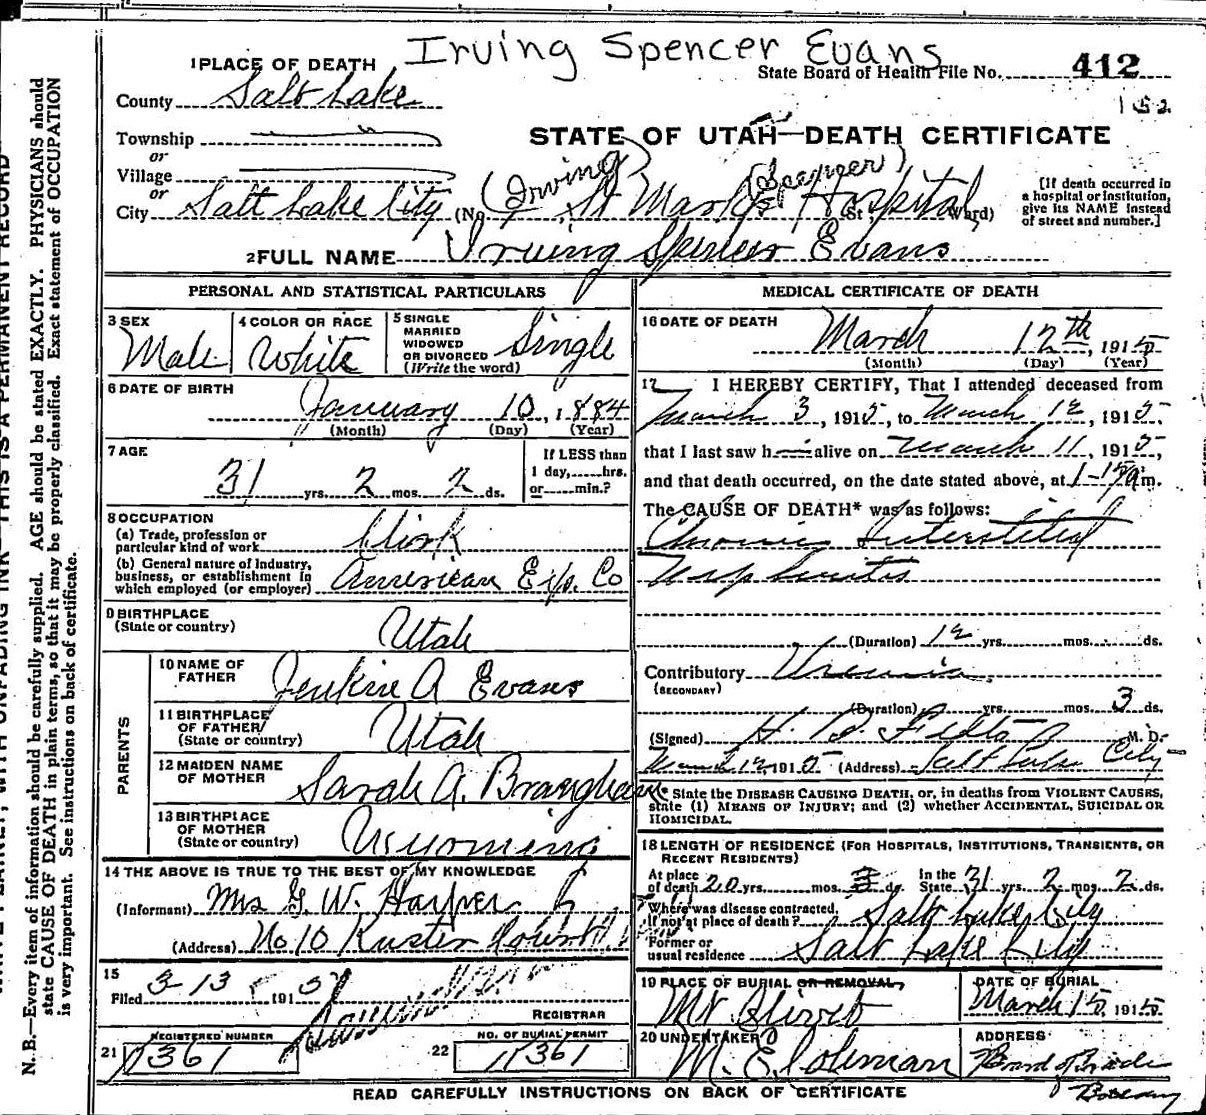 Irving Spencer Evans
1 PLACE OF DEATH
State Board of Health File No. 412
County Salt Lake
152
Township
STATE OF UTAH—DEATH CERTIFICATE
or
Village
(Irving) (Spencer)
or
City Salt Lake City (No. St Marks Hospital St., Ward)
[If death occurred in
a hospital or institution,
give its NAME instead
of street and number.]
2 FULL NAME Irving Spencer Evans
PERSONAL AND STATISTICAL PARTICULARS
3 SEX
Male
4 COLOR OR RACE
White
5 SINGLE
MARRIED
WIDOWED
OR DIVORCED
(Write the word)
Single
6 DATE OF BIRTH
January 10, 1884
(Month) (Day) (Year)
7 AGE
31 yrs. 2 mos. 2 ds.
If LESS than
1 day, hrs.
or min.?
8 OCCUPATION
(a) Trade, profession or
particular kind of work Clerk
(b) General nature of Industry,
business, or establishment in
which employed (or employer) American Exp. Co
9 BIRTHPLACE
(State or country)
Utah
PARENTS
10 NAME OF
FATHER
Jenkin A Evans
11 BIRTHPLACE
OF FATHER
(State or country)
Utah
12 MAIDEN NAME
OF MOTHER
Sarah A.
13 BIRTHPLACE
OF MOTHER
(State or country)
Wyoming
14 THE ABOVE IS TRUE TO THE BEST OF MY KNOWLEDGE
(Informant) Mrs G. W. Harper
(Address) No 10
15
Filed 3-13 191
REGISTRAR
REGISTERED NUMBER
21 361
NO. OF BURIAL PERMIT
22 361
MEDICAL CERTIFICATE OF DEATH
16 DATE OF DEATH
March 12th, 1915
(Month) (Day) (Year)
17 I HEREBY CERTIFY, That I attended deceased from
March 3, 1915, to March 12, 1915,
that I last saw h alive on March 11, 1915,
and that death occurred, on the date stated above, at m.
The CAUSE OF DEATH* was as follows:
Chronic Interstitial
Nephritis
(Duration) 12 yrs. mos. ds.
Contributory Uremia
(SECONDARY)
(Duration) yrs. mos. 3 ds.
(Signed) H. M. D.
March 12, 1915 (Address) Salt Lake City
* State the DISEASE CAUSING DEATH, or, in deaths from VIOLENT CAUSES,
state (1) MEANS OF INJURY; and (2) whether ACCIDENTAL, SUICIDAL OR
HOMICIDAL.
18 LENGTH OF RESIDENCE (FOR HOSPITALS, INSTITUTIONS, TRANSIENTS, OR
RECENT RESIDENTS)
At place
of death 20 yrs. mos. ds. In the
State 31 yrs. 2 mos. 2 ds.
Where was disease contracted,
if not at place of death? Salt Lake City
Former or
usual residence Salt Lake City
19 PLACE OF BURIAL OR REMOVAL
Mt Olivet
DATE OF BURIAL
March 15 1915
20 UNDERTAKER
M. E. Coleman
ADDRESS
Board of Trade
READ CAREFULLY INSTRUCTIONS ON BACK OF CERTIFICATE
N. B.—Every item of information should be carefully supplied. AGE should be stated EXACTLY. PHYSICIANS should
state CAUSE OF DEATH in plain terms, so that it may be properly classified. Exact statement of OCCUPATION
is very important. See instructions on back of certificate.